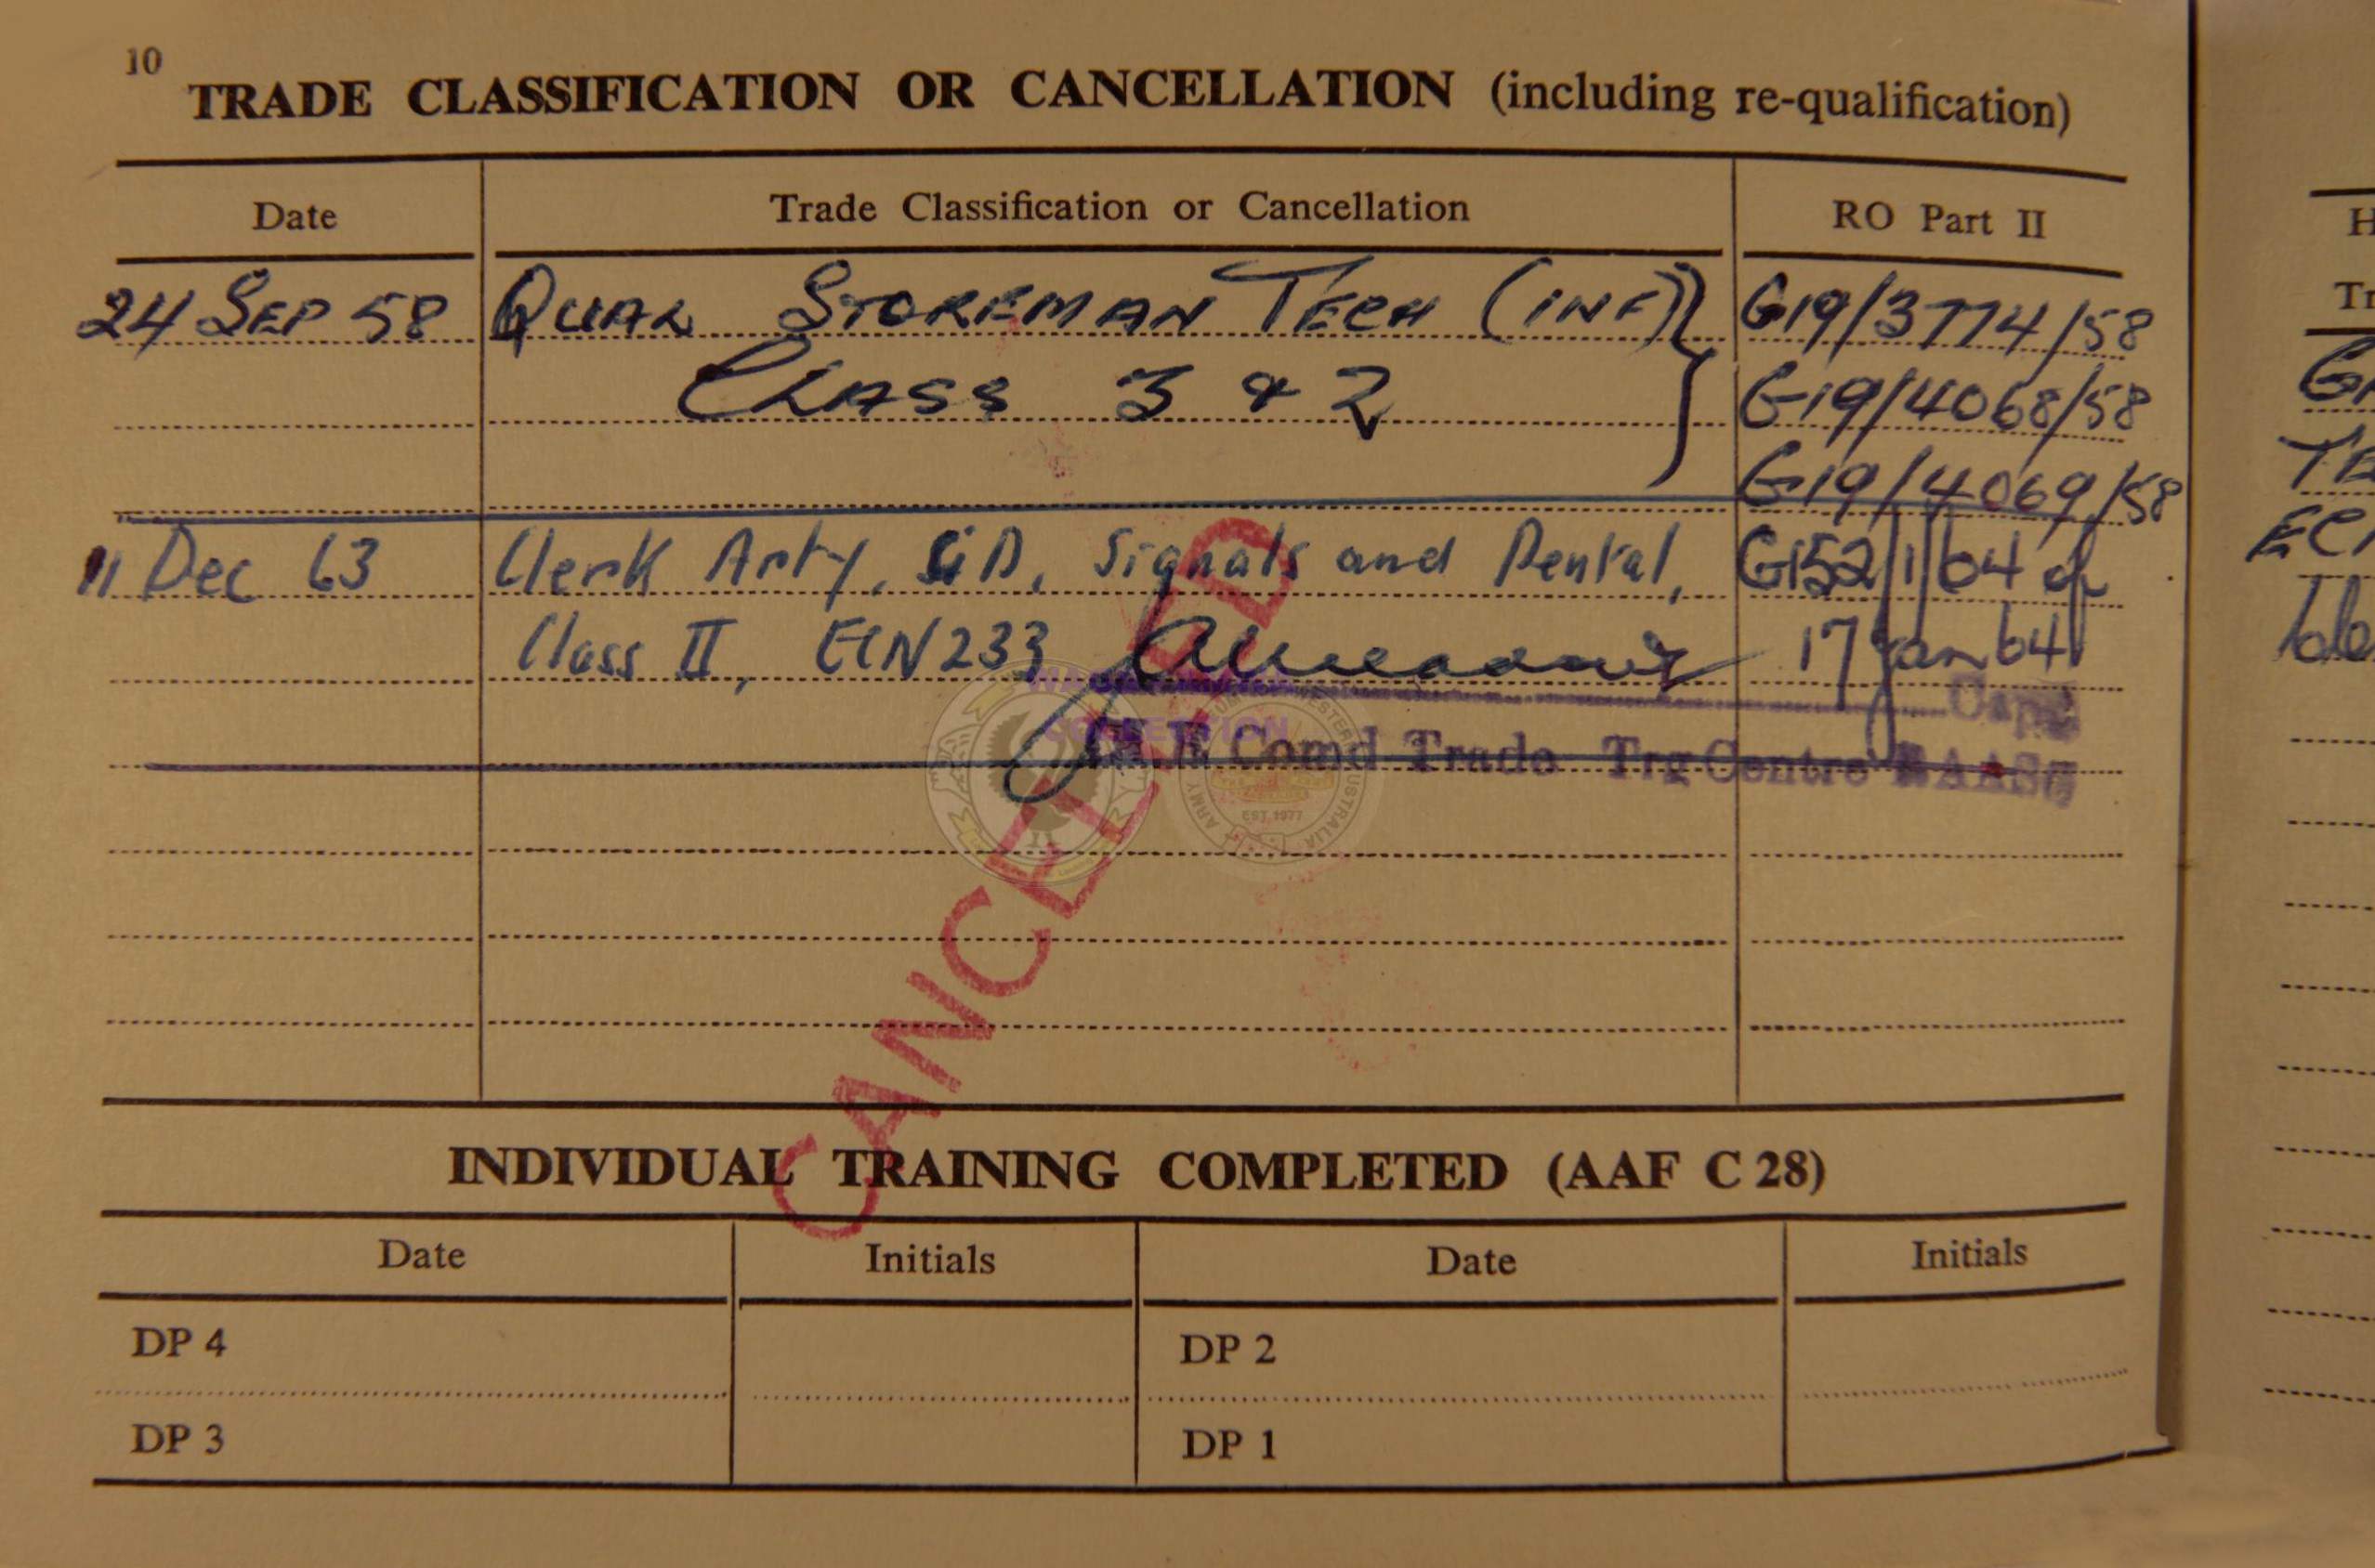 10
TRADE CLASSIFICATION OR CANCELLATION (including re-qualification)
Date Trade Classification or Cancellation RO Part II
24 SEP 58 QUAL STOREMAN TECH (INF) G19/3774/58
CLASS 3 & 2 G19/4068/58
G19/4069/58
11 Dec 63 Clerk Arty, Signals and Dental, G152/1/64 of
Class II, ECN 233 17 Jan 64
Capt
Comd Trade Trg Centre
CANCELLED
EST. 1977
INDIVIDUAL TRAINING COMPLETED (AAF C 28)
Date Initials Date Initials
DP 4 DP 2
DP 3 DP 1